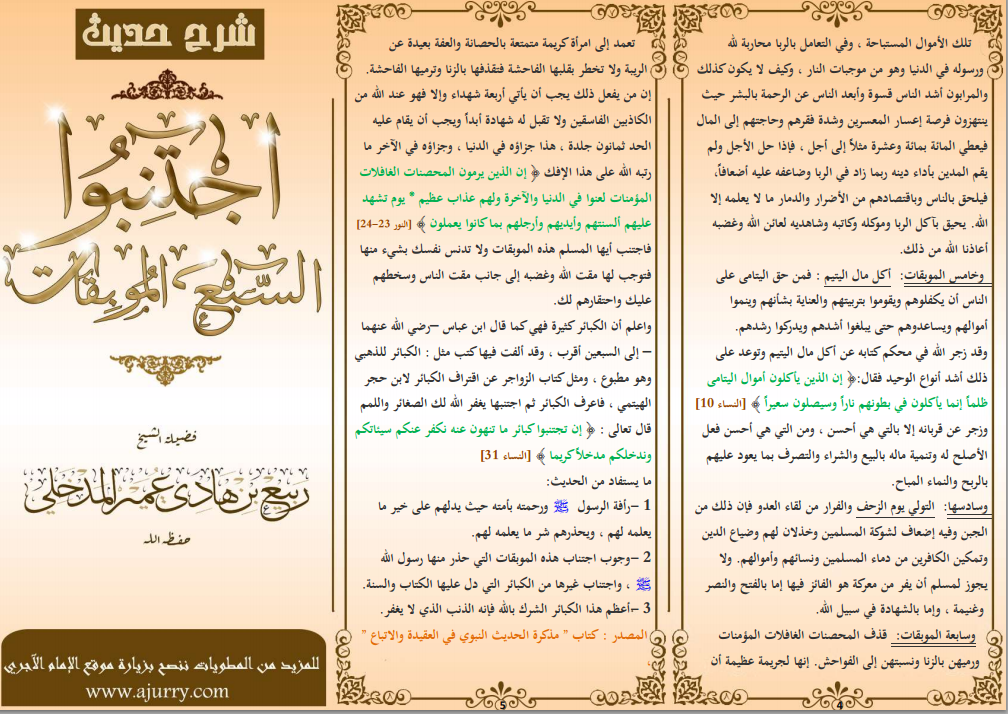 تلك الأموال المستباحة ، وفي التعامل بالربا محاربة لله
ورسوله في الدنيا وهو من موجبات النار ، وكيف لا يكون كذلك
والمرابون أشد الناس قسوة وأبعد الناس عن الرحمة بالبشر حيث
ينتهزون فرصة إعسار المعسرين وشدة فقرهم وحاجتهم إلى المال
فيعطي المائة بمائة وعشرة مثلاً إلى أجل ، فإذا حل الأجل ولم
يقم المدين بأداء دينه ربما زاد في الربا وضاعفه عليه أضعافاً،
فيلحق بالناس وباقتصادهم من الأضرار والدمار ما لا يعلمه إلا
الله. يحيق بآكل الربا وموكله وكاتبه وشاهديه لعائن الله وغضبه
أعاذنا الله من ذلك.
وخامس الموبقات: أكل مال اليتيم : فمن حق اليتامى على
الناس أن يكفلوهم ويقوموا بتربيتهم والعناية بشأنهم وينموا
أموالهم ويساعدوهم حتى يبلغوا أشدهم ويدركوا رشدهم.
وقد زجر الله في محكم كتابه عن أكل مال اليتيم وتوعد على
ذلك أشد أنواع الوعيد فقال:﴿ إن الذين يأكلون أموال اليتامى
ظلماً إنما يأكلون في بطونهم ناراً وسيصلون سعيراً ﴾ [النساء 10]
وزجر عن قربانه إلا بالتي هي أحسن ، ومن التي هي أحسن فعل
الأصلح له وتنمية ماله بالبيع والشراء والتصرف بما يعود عليهم
بالربح والنماء المباح.
وسادسها: التولي يوم الزحف والفرار من لقاء العدو فإن ذلك من
الجبن وفيه إضعاف لشوكة المسلمين وخذلان لهم وضياع الدين
وتمكين الكافرين من دماء المسلمين ونسائهم وأموالهم. ولا
يجوز لمسلم أن يفر من معركة هو الفائز فيها إما بالفتح والنصر
وغنيمة ، وإما بالشهادة في سبيل الله.
وسابعة الموبقات: قذف المحصنات الغافلات المؤمنات
ورميهن بالزنا ونسبتهن إلى الفواحش. إنها لجريمة عظيمة أن
4
تعمد إلى امرأة كريمة متمتعة بالحصانة والعفة بعيدة عن
الريبة ولا تخطر بقلبها الفاحشة فتقذفها بالزنا وترميها الفاحشة.
إن من يفعل ذلك يجب أن يأتي أربعة شهداء وإلا فهو عند الله من
الكاذبين الفاسقين ولا تقبل له شهادة أبداً ويجب أن يقام عليه
الحد ثمانون جلدة ، هذا جزاؤه في الدنيا ، وجزاؤه في الآخر ما
رتبه الله على هذا الإفك ﴿ إن الذين يرمون المحصنات الغافلات
المؤمنات لعنوا في الدنيا والآخرة ولهم عذاب عظيم * يوم تشهد
عليهم ألسنتهم وأيديهم وأرجلهم بما كانوا يعملون ﴾ [النور 23–24]
فاجتنب أيها المسلم هذه الموبقات ولا تدنس نفسك بشيء منها
فتوجب لها مقت الله وغضبه إلى جانب مقت الناس وسخطهم
عليك واحتقارهم لك.
واعلم أن الكبائر كثيرة فهي كما قال ابن عباس –رضي الله عنهما
– إلى السبعين أقرب ، وقد ألفت فيها كتب مثل : الكبائر للذهبي
وهو مطبوع ، ومثل كتاب الزواجر عن اقتراف الكبائر لابن حجر
الهيتمي ، فاعرف الكبائر ثم اجتنبها يغفر الله لك الصغائر واللمم
قال تعالى : ﴿ إن تجتنبوا كبائر ما تنهون عنه نكفر عنكم سيئاتكم
وندخلكم مدخلاً كريما ﴾ [النساء 31]
ما يستفاد من الحديث:
1 –رأفة الرسول ﷺ ورحمته بأمته حيث يدلهم على خير ما
يعلمه لهم ، ويحذرهم شر ما يعلمه لهم.
2 –وجوب اجتناب هذه الموبقات التي حذر منها رسول الله
ﷺ ، واجتناب غيرها من الكبائر التي دل عليها الكتاب والسنة.
3 –أعظم هذا الكبائر الشرك بالله فإنه الذنب الذي لا يغفر.
المصدر : كتاب " مذكرة الحديث النبوي في العقيدة والاتباع "
.
5
شرح حديث
اجْتنبُوا
السَّبع المُوبقات
فضيلة الشيخ
ربيع بن هادي عمير المدخلي
حفظه الله
للمزيد من المطويات ننصح بزيارة موقع الإمام الآجري
www.ajurry.com